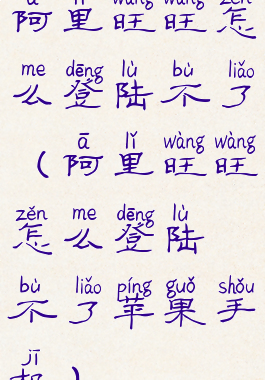 ā lǐ wàng wàng zěn
阿里旺旺怎
me dēng lù bù liǎo
么登陆不了
ā lǐ wàng wàng
(阿里旺旺
zěn me dēng lù
怎么登陆
bù liǎo píng guǒ shǒu
不了苹果手
jī
机)